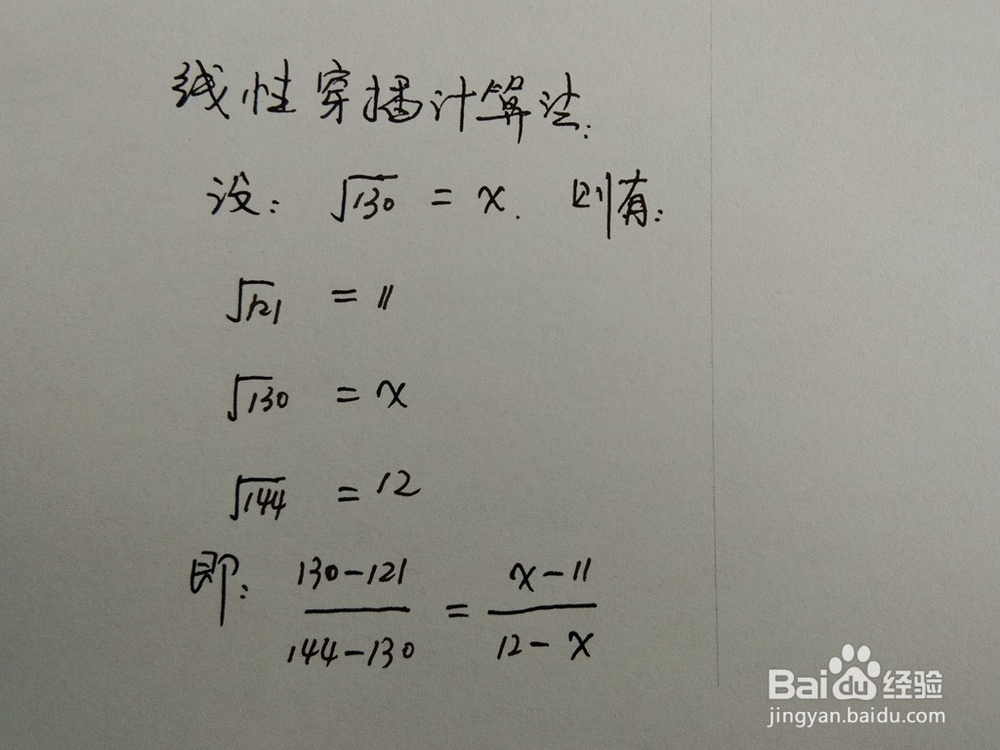 线性穿插计算法:
设: √130 = x. 则有:
√121 = 11
√130 = x
√144 = 12
即: (130-121)/(144-130) = (x-11)/(12-x)
Baidu经验
jingyan.baidu.com